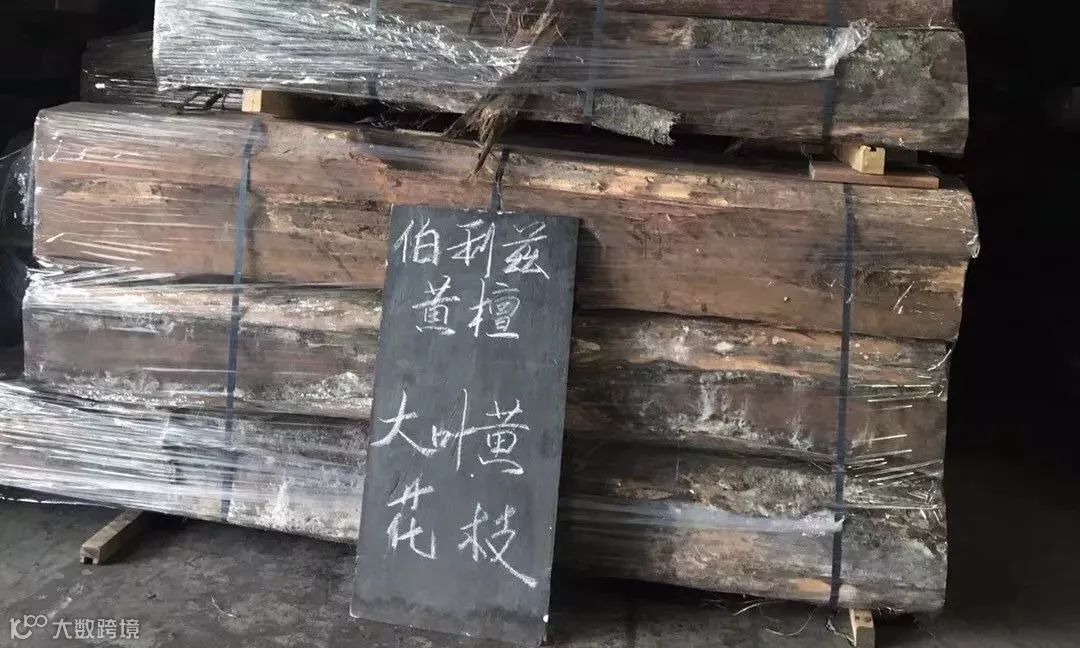 伯利兹
黄檀
大叶黄
花枝
大数跨境